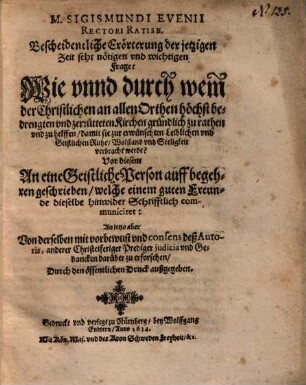 M. SIGISMUNDI EVENII
RECTORI RATISB.
Bescheidentliche Erörterung der jetzigen
Zeit sehr nötigen vnd wichtigen
Frage:
Wie vnnd durch wem
der Christlichen an allen Orthen höchst be-
drengten vnd zerrütteten Kirchen gründlich zu rathen
vnd zu helffen / damit sie zur erwünschten Leiblichen vnd
Geistlichen Ruhe / Wolstand vnd Seeligkeit
verbracht werde?
Vor diesem
An eine Geistliche Person auff begeh-
ren geschrieben / welche einem guten Freun-
de dieselbe hinwider Schrifftlich com-
municiret:
An jetzo aber
Von derselben mit vorbewust vnd consens deß Auto-
ris, anderer Christeiferiger Prediger judicia vnd Ge-
dancken darüber zu erforschen /
Durch den öffentlichen Druck außgegeben.
Gedruckt vnd verlegt zu Nürnberg / bey Wolffgang
Endtern / Anno 1634.
Mit Kön. Maj. vnd der Kron Schweden Freyheit / &c.